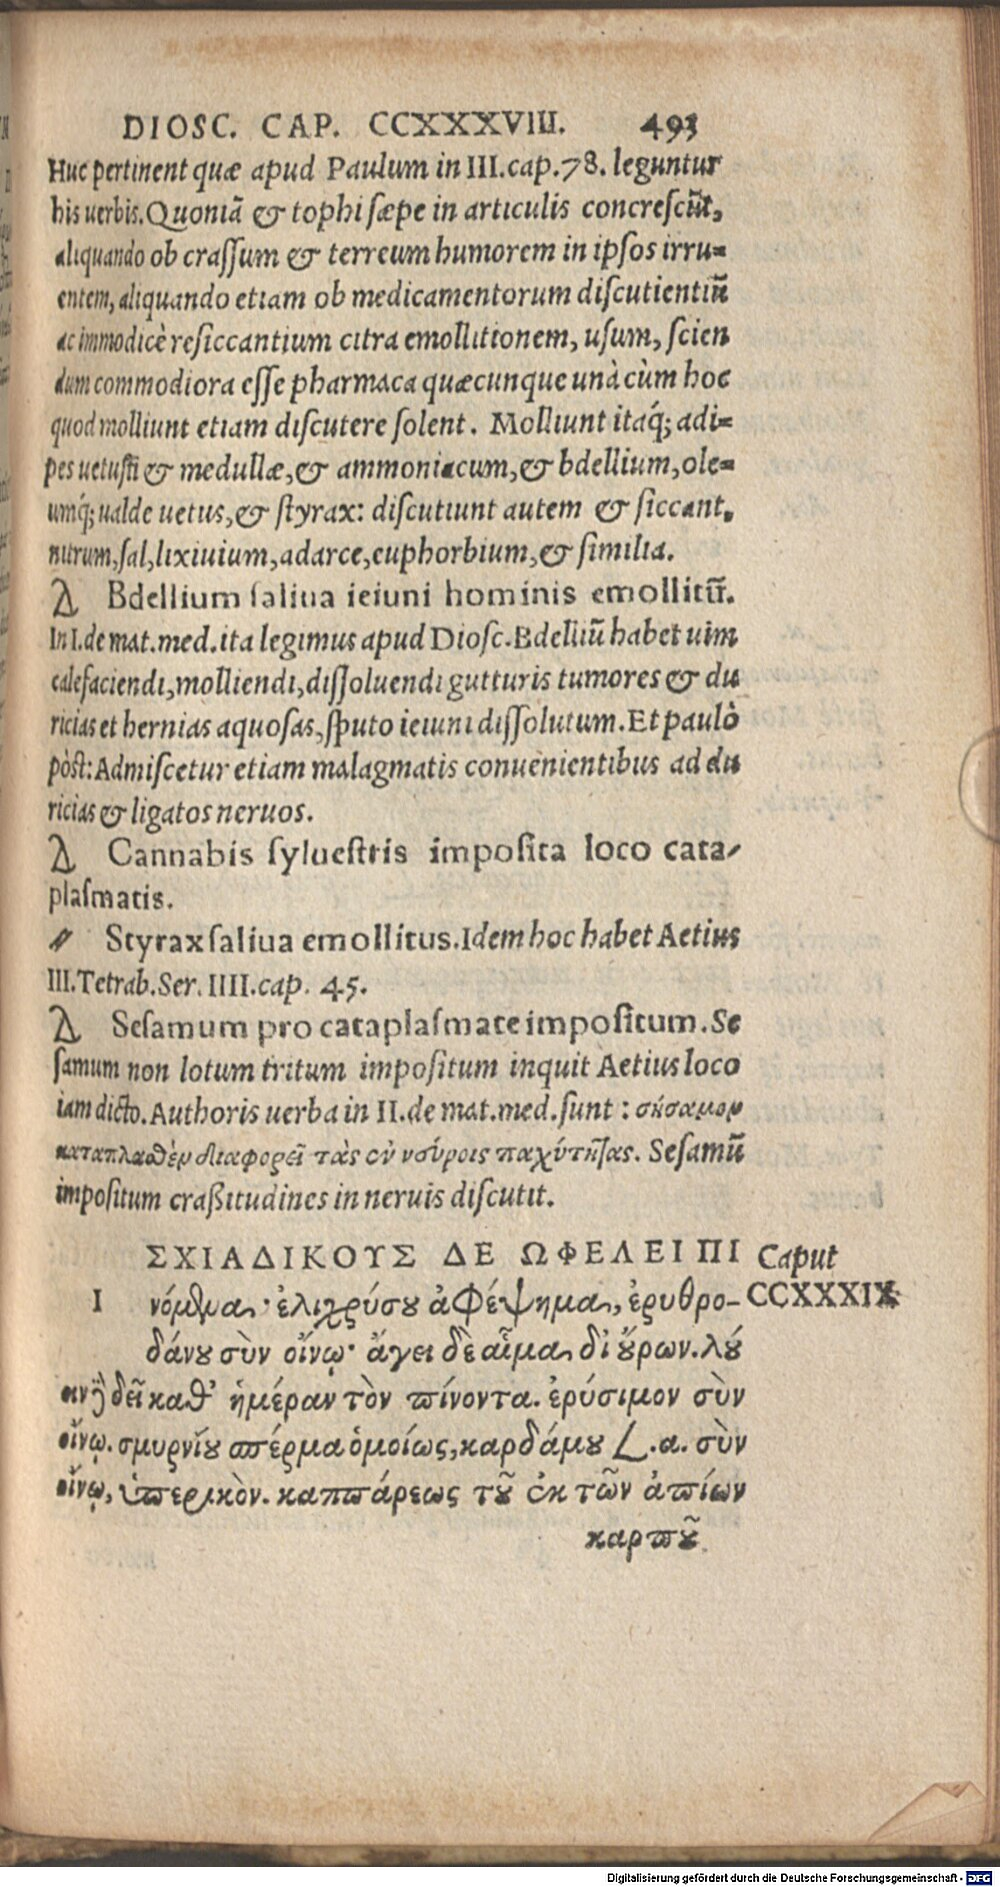 DIOSC. CAP. CCXXXVIII. 493
Huc pertinent quæ apud Paulum in III. cap. 78. leguntur
his uerbis. Quoniā & tophi sæpe in articulis concrescūt,
aliquando ob crassum & terreum humorem in ipsos irru=
entem, aliquando etiam ob medicamentorum discutientiū
ac immodicè resiccantium citra emollitionem, usum, scien
dum commodiora esse pharmaca quæcunque unà cùm hoc
quod molliunt etiam discutere solent. Molliunt itaq́; adi=
pes uetusti & medullæ, & ammoniacum, & bdellium, ole=
umq́; ualde uetus, & styrax: discutiunt autem & siccant,
nitrum, sal, lixiuium, adarce, euphorbium, & similia.
Bdellium saliua ieiuni hominis emollitū.
In I. de mat. med. ita legimus apud Diosc. Bdelliū habet uim
calefaciendi, molliendi, dissoluendi gutturis tumores & du
ricias et hernias aquosas, sputo ieiuni dissolutum. Et paulò
pòst: Admiscetur etiam malagmatis conuenientibus ad du
ricias & ligatos neruos.
Cannabis syluestris imposita loco cata-
plasmatis.
〃 Styrax saliua emollitus. Idem hoc habet Aetius
III. Tetrab. Ser. IIII. cap. 45.
Sesamum pro cataplasmate impositum. Se
samum non lotum tritum impositum inquit Aetius loco
iam dicto. Authoris uerba in II. de mat. med. sunt: σήσαμον
καταπλασθὲν διαφορεῖ τὰς ἐν νεύροις παχύτητας. Sesamū
impositum craßitudines in neruis discutit.
ΣΧΙΑΔΙΚΟΥΣ ΔΕ ΩΦΕΛΕΙ ΠΙ Caput
I νόμενα, ἑλιχρύσου ἀφέψημα, ἐρυθρο- CCXXXIX
δάνου σὺν οἴνῳ· ἄγει δὲ αἷμα δι' οὔρων. λού
ειν δὲ δεῖ καθ' ἡμέραν τὸν πίνοντα. ἐρύσιμον σὺν
οἴνῳ. σμυρνίου σπέρμα ὁμοίως, καρδάμου L. α. σὺν
οἴνῳ, ὑπερικὸν. καππάρεως τοῦ ἐκ τῶν ἀπίων
καρποῦ
Digitalisierung gefördert durch die Deutsche Forschungsgemeinschaft - DFG